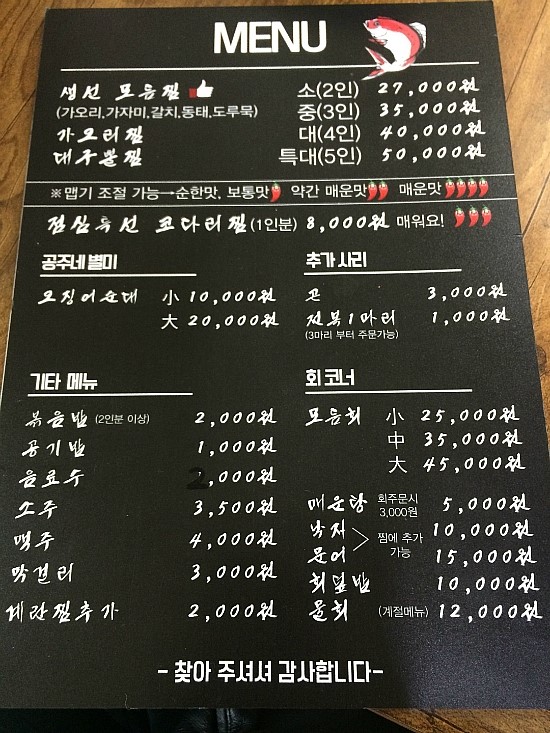 MENU
생선 모듬찜 소(2인) 27,000원
(가오리,가자미,갈치,동태,도루묵) 중(3인) 35,000원
가오리찜 대(4인) 40,000원
대구뽈찜 특대(5인) 50,000원
※맵기 조절 가능→순한맛, 보통맛 약간 매운맛 매운맛
점심특선 코다리찜(1인분) 8,000원 매워요!
공주네 별미
오징어순대 小 10,000원
大 20,000원
추가 사리
곤 3,000원
전복1마리 1,000원
(3마리 부터 주문가능)
기타 메뉴
볶음밥 (2인분 이상) 2,000원
공기밥 1,000원
음료수 2,000원
소주 3,500원
맥주 4,000원
막걸리 3,000원
계란찜추가 2,000원
회 코너
모듬회 小 25,000원
中 35,000원
大 45,000원
매운탕 회주문시 3,000원 5,000원
낙지 10,000원
문어 15,000원
찜에 추가 가능
회덮밥 10,000원
물회 (계절메뉴) 12,000원
- 찾아 주셔셔 감사합니다-